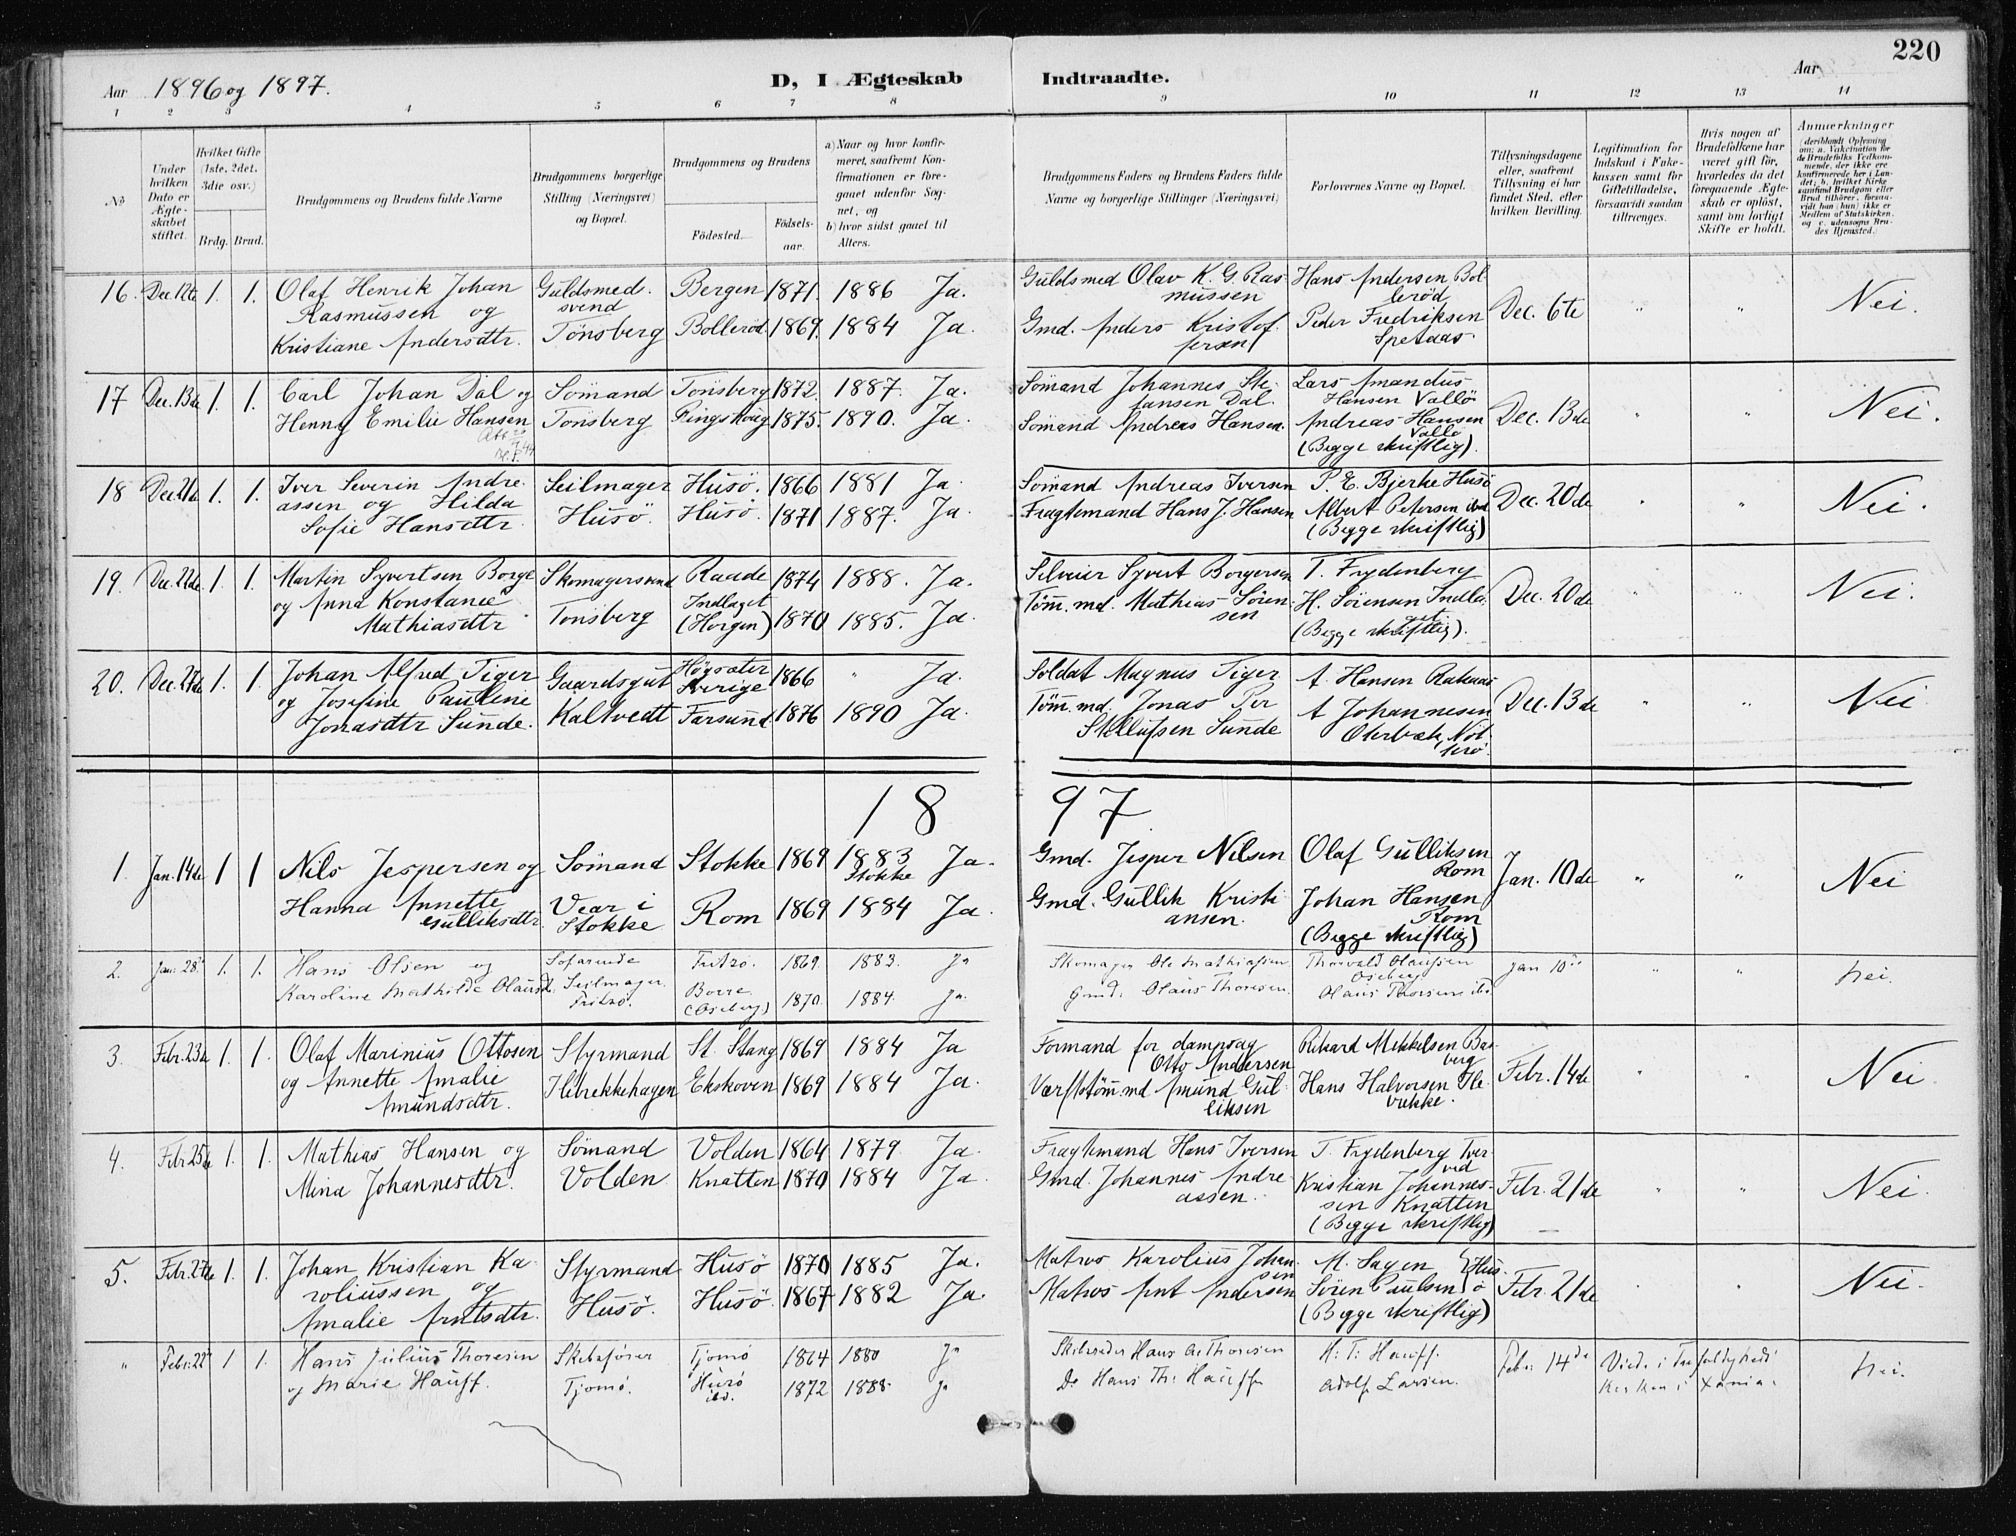 220
Aar 1896 og 1897.
D, I Ægteskab Indtraadte.
Aar
1 2 3 4 5 6 7 8 9 10 11 12 13 14
No
Under hvilken Dato er Ægteskabet stiftet.
Hvilket Gifte (1ste, 2det, 3die osv.)
Brdg. Brud.
Brudgommens og Brudens fulde Navne
Brudgommens borgerlige Stilling (Næringsvei) og Bopæl.
Brudgommens og Brudens
Fødested.
Fødselsaar.
a) Naar og hvor konfirmeret, saafremt Konfirmationen er foregaaet udenfor Sognet, og
b) hvor sidst gaaet til Alters.
Brudgommens Faders og Brudens Faders fulde Navne og borgerlige Stillinger (Næringsvei)
Forlovernes Navne og Bopæl.
Tillysningsdagene eller, saafremt Tillysning ei har fundet Sted, efter hvilken Bevilling.
Legitimation for Indskud i Enkekassen samt for Giftetilladelse, forsaavidt saadan tiltrænges.
Hvis nogen af Brudefolkene har været gift før, hvorledes da det foregaaende Ægteskab er opløst, samt om lovligt Skifte er holdt.
Anmærkninger
16. Dec. 12te 1. 1. Olaf Henrik Johan Guldsmed. Bergen 1871. 1886 Ja. Guldsmed Olav K. G. Ras Hans Andersen Bol Dec. 6te " " Nei.
Rasmussen og svend mussen lerød
Kristiane Andersdtr. Tönsberg Bollerød 1869. 1884 Ja. Gmd. Anders Kristof. Peder Fredriksen
fersen Spetaas
17 Dec. 13de 1. 1. Carl Johan Dal og Sømand Tønsberg 1872. 1887. Ja. Sømand Johannes Ste- Lars Amandus Dec. 13de " " Nei.
fansen Dal. Hansen Vallö
Henny Emilie Hansen Tönsberg Ringshaug 1875. 1890. Ja. Sømand Andreas Hansen. Andreas Hansen
Vallö
(Begge skriftlig).
18 Dec. 21de 1. 1. Iver Severin Andre. Seilmager Husö. 1866 1881 Ja. Sømand Andreas Iversen P. E. Bjerke Husö Dec. 20de " " Nei.
assen og Hilda Husö. Husö. 1871 1887. Ja. Fragtemand Hans J. Hansen Albert Petersen ibd
Sofie Hansdtr. (Begge skriftlig)
19. Dec. 22de 1. 1. Martin Syvertsen Borge Skomagersvend Raade 1874 1888. Ja. Selveier Syvert Borgersen T. Frydenberg Dec. 20de " " Nei.
og Anna Konstance Tønsberg Indlaget Tömmd. Mathias Sören- H. Sörensen Indla-
Mathiasdtr (Horgen) 1870 1885. Ja. sen get
(Begge skriftlig).
20. Dec. 27de 1. 1. Johan Alfred Tiger Gaardsgut Högsæter 1866 " Ja. Soldat Magnus Tiger A. Hansen Ramnæs Dec. 13de " " Nei
og Josefine Pauline Sverige
Jonasdtr Sunde. Kaltvedt Farsund 1876 1890 Ja. Tömmd. Jonas Per A Johannesen
Stellufsen Sunde Oterbæk, Nöt
terö.
18 97
1. Jan. 14de 1 1 Nils Jespersen og Sømand Stokke 1869 1883 Ja. Gmd. Jesper Nilsen Olaf Gulliksen Jan. 10de " " Nei
Stokke Rom
Hanna Annette Vear i Rom 1869 1884 Ja. Gmd. Gullik Kristi- Johan Hansen
Gulliksdtr. Stokke ansen. Rom
(Begge skriftlig)
2. Jan. 28. 1. 1. Hans Olsen og Søfarende Fritzö. 1869. 1883. Ja Skomager Ole Mathiassen Thorvald Olaussen Jan 10de " " Nei.
Karoline Mathilde Olausd. Seilmager. Borre 1870. 1884. Ja. Gmd. Olaus Thoresen. Oseberg
Fritzö. (Oseberg) Olaus Thoresen ibd
3. Febr. 23de 1. 1. Olaf Marinius Ottosen Styrmand St. Stang 1869 1884 Ja Formand for dampsag Rikard Mikkelsen Bas Febr. 14de " " Nei.
og Annette Amalie Otto Andersen berg
Amundsdtr. Ilebrekkehagen Ekskoven 1869 1884 Ja. Værftstömmd Amund Gul- Hans Halvorsen Ile
liksen brekke.
4. Febr 25de 1. 1. Mathias Hansen og Sømand Volden 1864 1879. Ja. Fragtemand Hans Iversen T. Frydenberg Tver Febr. 21de " " Nei.
ved
Mina Johannesdtr. Volden Knatten 1870 1884 Ja. Gmd. Johannes Andre- Kristian Johannes-
assen. sen Knatten
(Begge skriftlig)
5. Febr. 27de 1. 1. Johan Kristian Ka- Styrmand Husö 1870 1885 Ja. Matros Karolius Johan- M. Sagen } Hus- Febr. 21de " " Nei.
roliussen og sen
Amalie Antsdtr. Husö. Husö. 1867 1882 Ja. Matros Ant Andersen Sören Paulsen } ö
(Begge skriftlig)
" Febr. 22 1 1. Hans Julius Thoresen Skibsfører Tjømø 1864 1880 Ja Skibsreder Hans A. Thoresen H. T. Hauff. Febr. 14de Viede i Trefoldigheds nei.
og Marie Hauff. Tjømø. Husø 1872 1888. Ja Do Hans Th. Hauff Adolf Larsen. Kirken i Xania.
ibd.